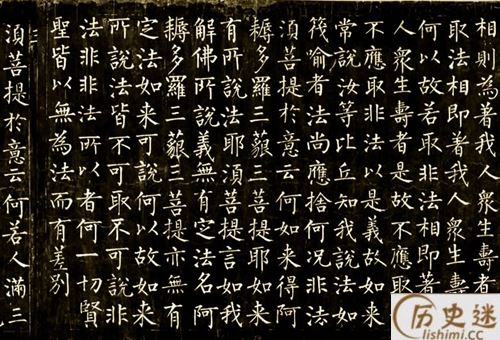 相則為著我人眾生壽者
取法相即著我人眾生壽
何以故若取非法相即著
人眾生壽者是故不應取
不應取非法以是義故如來
常說汝等比丘知我說法如
筏喻者法尚應捨何況非法
須菩提於意云何如來得阿
耨多羅三藐三菩提耶如來
有所說法耶須菩提言如我
解佛所說義無有定法名阿
耨多羅三藐三菩提亦無有
定法如來可說何以故如來
所說法皆不可取不可說非
法非非法所以者何一切賢
聖皆以無為法而有差別
三
須菩提於意云何若人滿三
历史迷
lishimi.cc